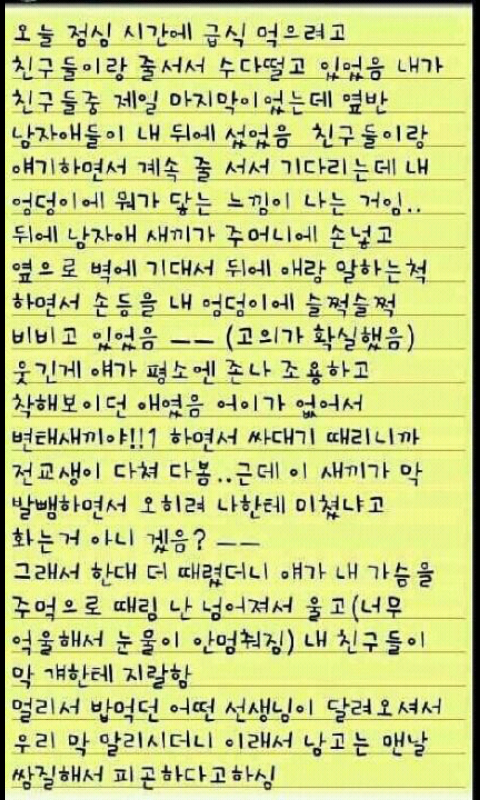 오늘 점심 시간에 급식 먹으려고
친구들이랑 줄서서 수다떨고 있었음 내가
친구들중 제일 마지막이었는데 옆반
남자애들이 내 뒤에 섰었음 친구들이랑
얘기하면서 계속 줄 서서 기다리는데 내
엉덩이에 뭐가 닿는 느낌이 나는 거임..
뒤에 남자애 새끼가 주머니에 손넣고
옆으로 벽에 기대서 뒤에 애랑 말하는척
하면서 손등을 내 엉덩이에 슬쩍슬쩍
비비고 있었음 ㅡㅡ (고의가 확실했음)
웃긴게 얘가 평소엔 존나 조용하고
착해보이던 애였음 어이가 없어서
변태새끼야!!1 하면서 싸대기 때리니까
전교생이 다쳐 다봄..근데 이 새끼가 막
발뺌하면서 오히려 나한테 미쳤냐고
화는거 아니 겠음? ㅡㅡ
그래서 한대 더 때렸더니 얘가 내 가슴을
주먹으로 때림 난 넘어져서 울고(너무
억울해서 눈물이 안멈춰짐) 내 친구들이
막 걔한테 지랄함
멀리서 밥먹던 어떤 선생님이 달려오셔서
우리 막 말리시더니 이래서 남고는 맨날
쌈질해서 피곤하다고하심